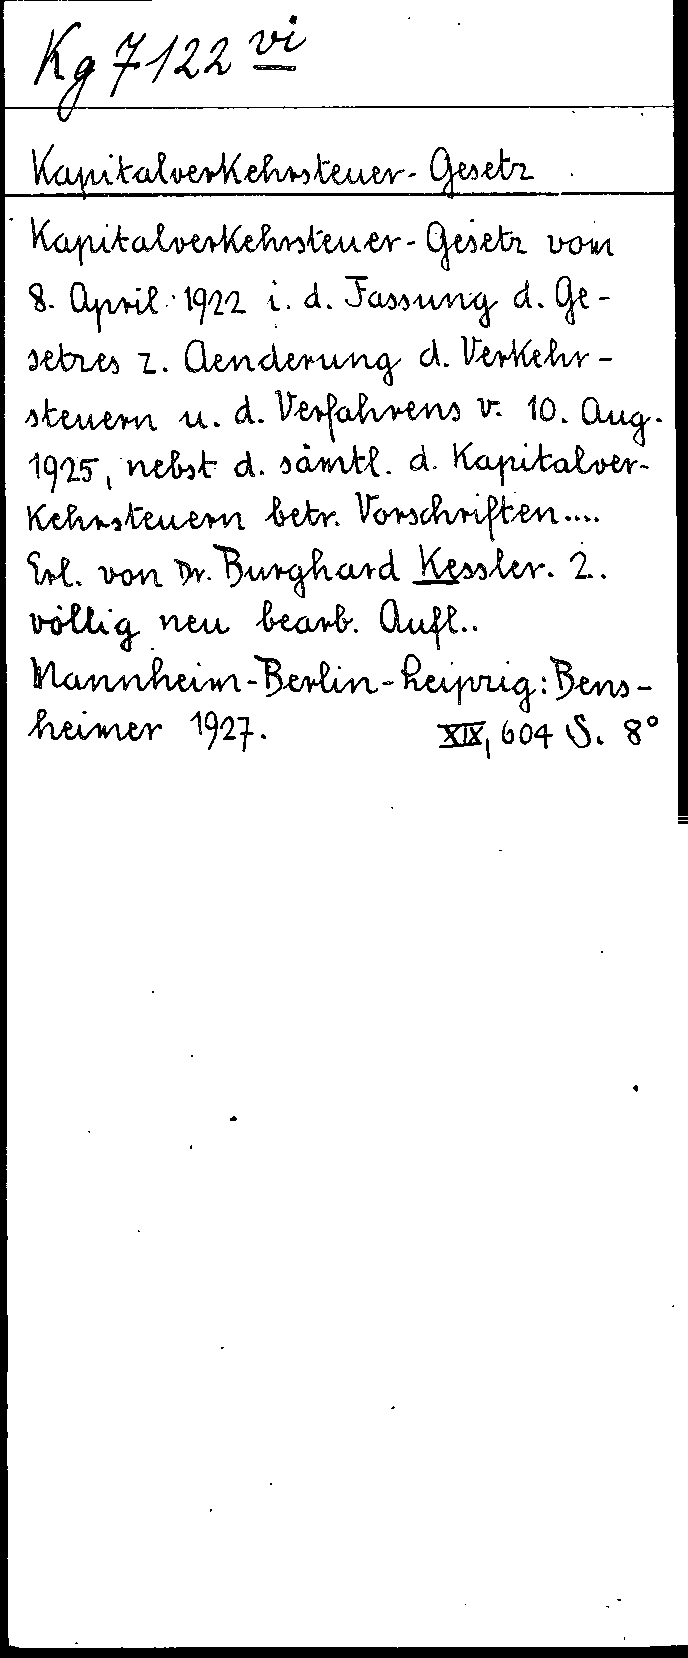 Kg 7122 vi
Kapitalverkehrsteuer-Gesetz
Kapitalverkehrsteuer-Gesetz vom
8. April 1922 i. d. Fassung d. Ge-
setzes z. Aenderung d. Verkehr-
steuern u. d. Verfahrens v. 10. Aug.
1925, nebst d. sämtl. d. Kapitalver-
kehrsteuern betr. Vorschriften....
Erl. von Dr. Burghard Kessler. 2.
völlig neu bearb. Aufl..
Mannheim-Berlin-Leipzig: Bens-
heimer 1927. XIX, 604 S. 8°